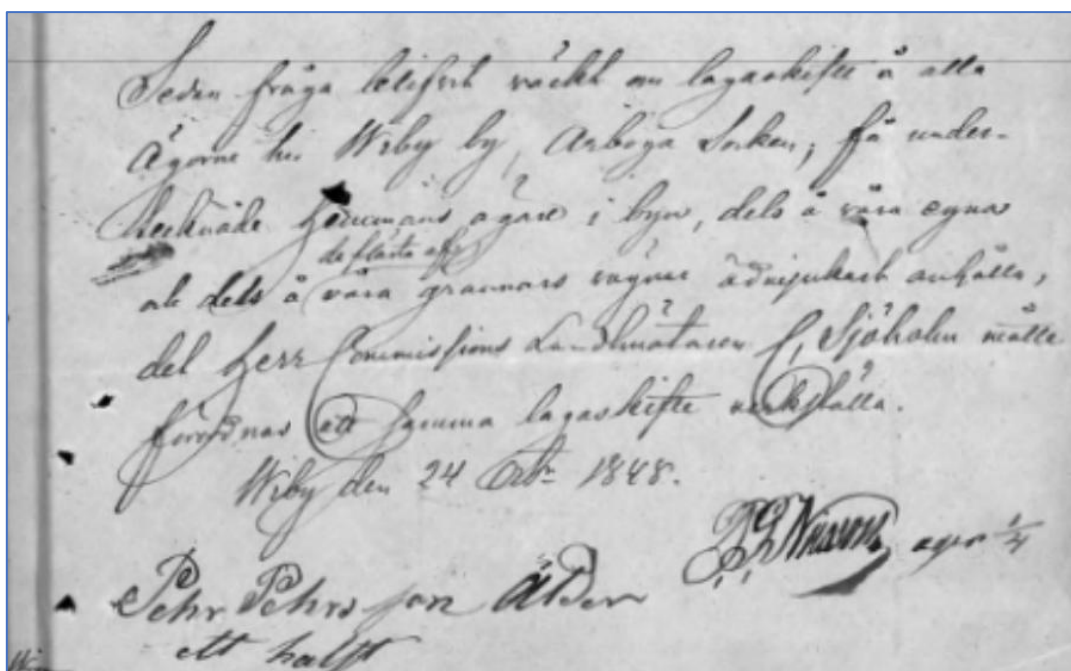 Sedan fråga blifvit väckt om lagaskifte å alla
Ägorne hos Wiby by, Arboga Socken, få under-
tecknade Hemmans ägare i byn, dels å våra egna
de flästa af
och dels å våra grannars vägnar ödmjukast anhålla,
det Herr Commissions Landtmätaren C, Sjöholm måtte
förordnas att samma lagaskifte verkställa.
Wiby den 24 Octbr 1848.
ager 1/4
Pehr Pehrs son
ett halft